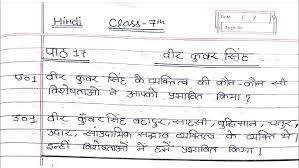 Hindi Class-7th
Date / /
पाठ 17 वीर कुवर सिंह
प्र०1 वीर कुंवर सिंह के व्यक्तित्व की कौन-कौन सी
विशेषताओं ने आपको प्रभावित किया?
उ०1 वीर कुंवर सिंह बहादुर, साहसी, बुद्धिमान, चतुर,
उदार, सांप्रदायिक सद्भाव व्यक्तित्व के व्यक्ति थे।
इन्हीं विशेषताओं ने हमें प्रभावित किया।